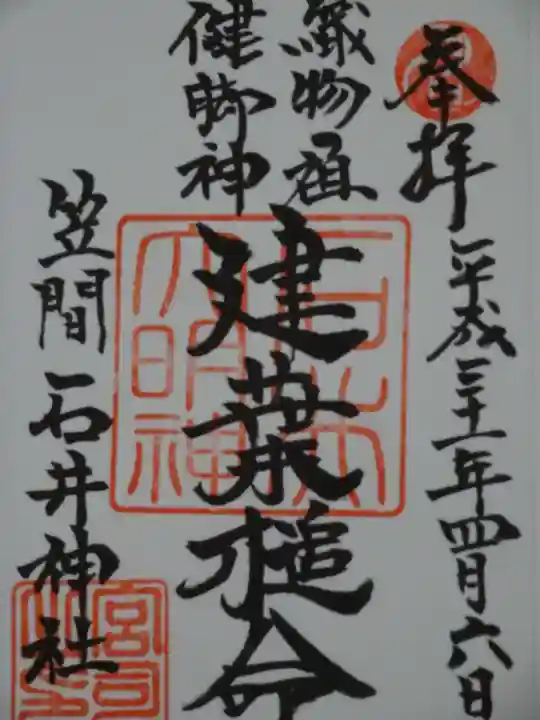 奉拝
平成三十一年四月六日
織物祖
健脚神
建葉槌命
笠間
石井神社
大明神
宮司